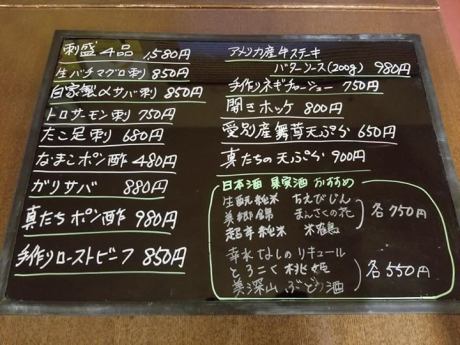 刺盛4品 1,580円
生バチマグロ刺 850円
自家製〆サバ刺 850円
トロサーモン刺 750円
たこ足刺 680円
なまこポン酢 480円
ガリサバ 880円
真たちポン酢 980円
手作りローストビーフ 850円
アメリカ産牛ステーキ
バターソース(200g) 980円
手作りネギチャーシュー 750円
開きホッケ 800円
愛別産舞茸天ぷら 650円
真たちの天ぷら 900円
日本酒 果実酒 おすすめ
生酛純米 ちえびじん
美郷錦 まんさくの花
超辛純米 米鶴
各750円
幸水なしのリキュール
とろこく桃姫
美深山ぶどう酒
各550円